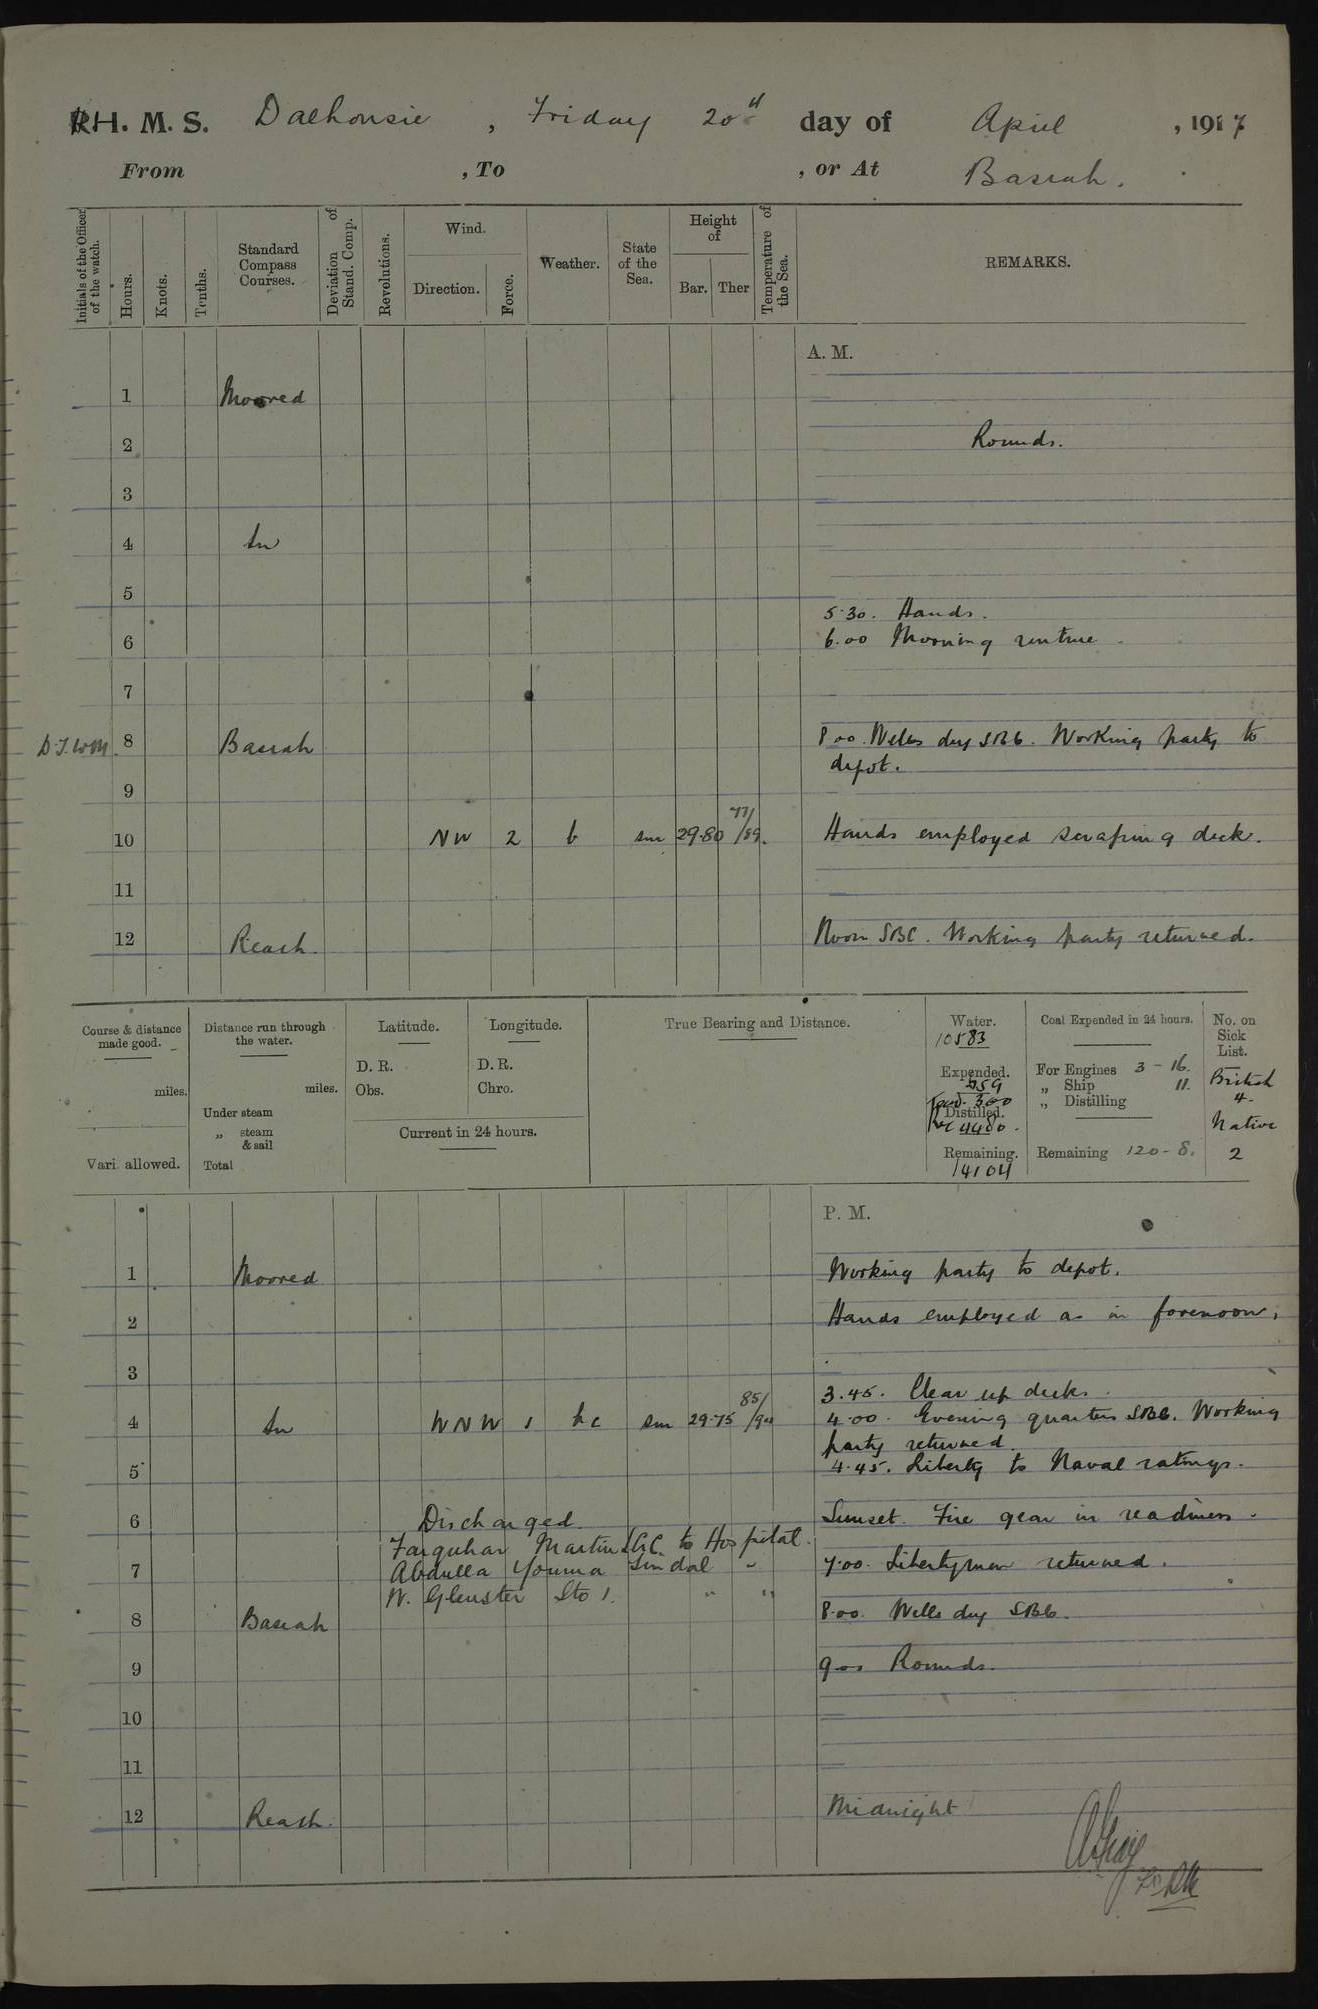 H. M. S. Dalhousie, Friday 20th day of April, 1917
From , To , or At Basrah.
Initials of the Officer of the watch.
Hours.
Knots.
Tenths.
Standard Compass Courses.
Deviation of Stand. Comp.
Revolutions.
Wind.
Direction.
Force.
Weather.
State of the Sea.
Height of
Bar. Ther
Temperature of the Sea.
REMARKS.
A. M.
1 Moored
2 Rounds.
3
4 In
5
5.30. Hands.
6 6.00 Morning routine.
7
8 Basrah 8.00. Wells dry SBC. Working party to
depot.
9
10 NW 2 b sm 29.80 77/89. Hands employed scraping deck.
11
12 Reach. Noon SBC. Working party returned.
Course & distance made good.
miles.
Vari. allowed.
Distance run through the water.
miles.
Under steam
„ steam & sail
Total
Latitude.
D. R.
Obs.
Longitude.
D. R.
Chro.
Current in 24 hours.
True Bearing and Distance.
Water.
10583
Expended.
959
300
Distilled.
Rec 4480.
Remaining.
14104
Coal Expended in 24 hours.
For Engines 3 - 16.
„ Ship 11.
„ Distilling
Remaining 120 - 8.
No. on Sick List.
British
4.
Native
2
P. M.
1 Moored Working party to depot.
2 Hands employed as in forenoon.
3
3.45. Clear up decks.
4 In WNW 1 bc sm 29.75 85/90 4.00. Evening quarters SBC. Working
party returned.
5 4.45. Liberty to Naval ratings.
6 Discharged. Sunset. Fire gear in readiness.
Farquhar Martin to Hospital.
7 Abdulla Youma Tindal " 7.00. Libertymen returned.
W. Glenster Sto 1. " "
8 Basrah 8.00. Wells dry SBC.
9 9.00 Rounds.
10
11
12 Reach. Midnight